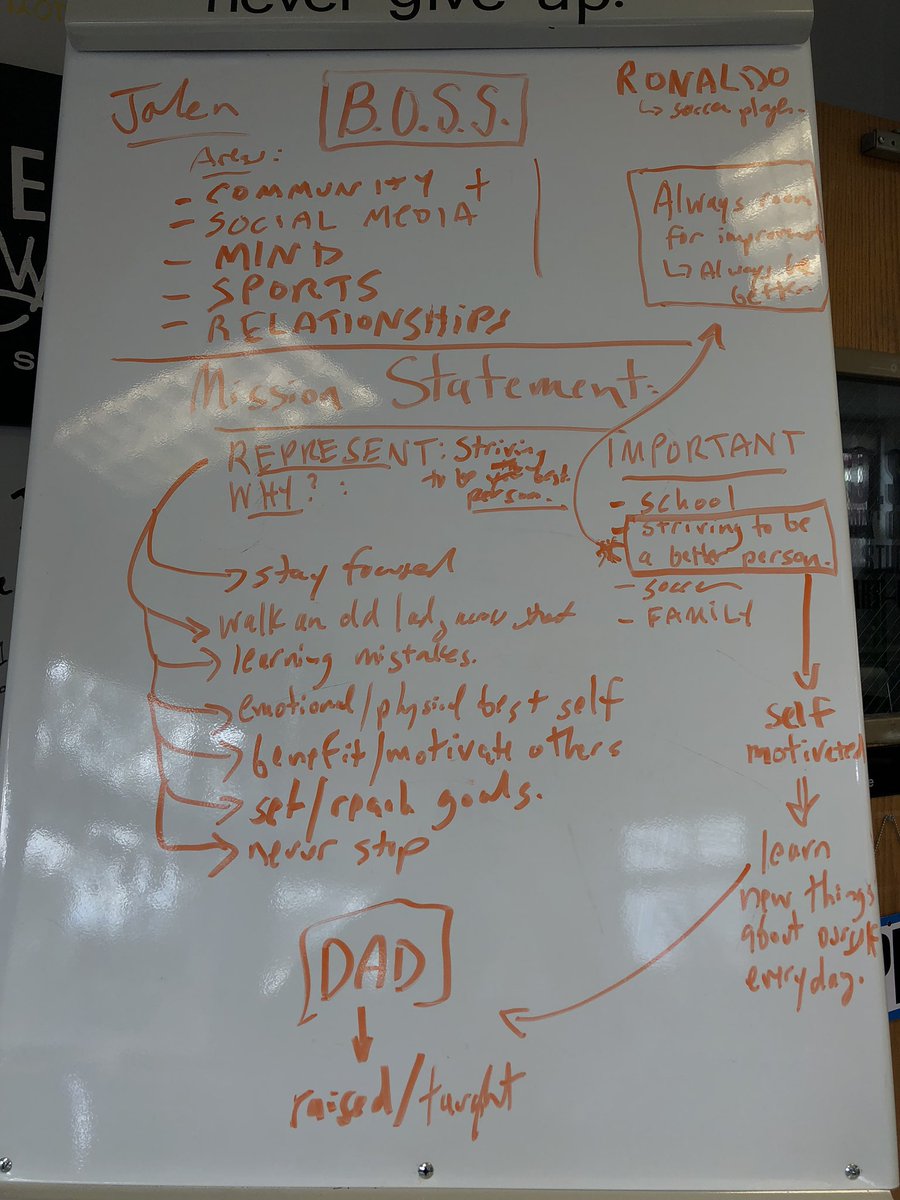 never give up!
Jalen
B.O.S.S.
RONALDO
↳ soccer player.
Areas:
- COMMUNITY +
- SOCIAL MEDIA
- MIND
- SPORTS
- RELATIONSHIPS
Always room
for improvement
↳ Always be
better
Mission Statement:
REPRESENT: Striving
to be best
person.
WHY? :
→ stay focused
→ walk an old lady across
→ learning mistakes.
→ emotional/physical best self
→ benefit/motivate others
→ set/reach goals.
→ never stop
IMPORTANT
- school
- striving to be
a better person.
- soccer
- FAMILY
self
motivated
learn
new things
about
everyday.
[DAD]
raised/taught